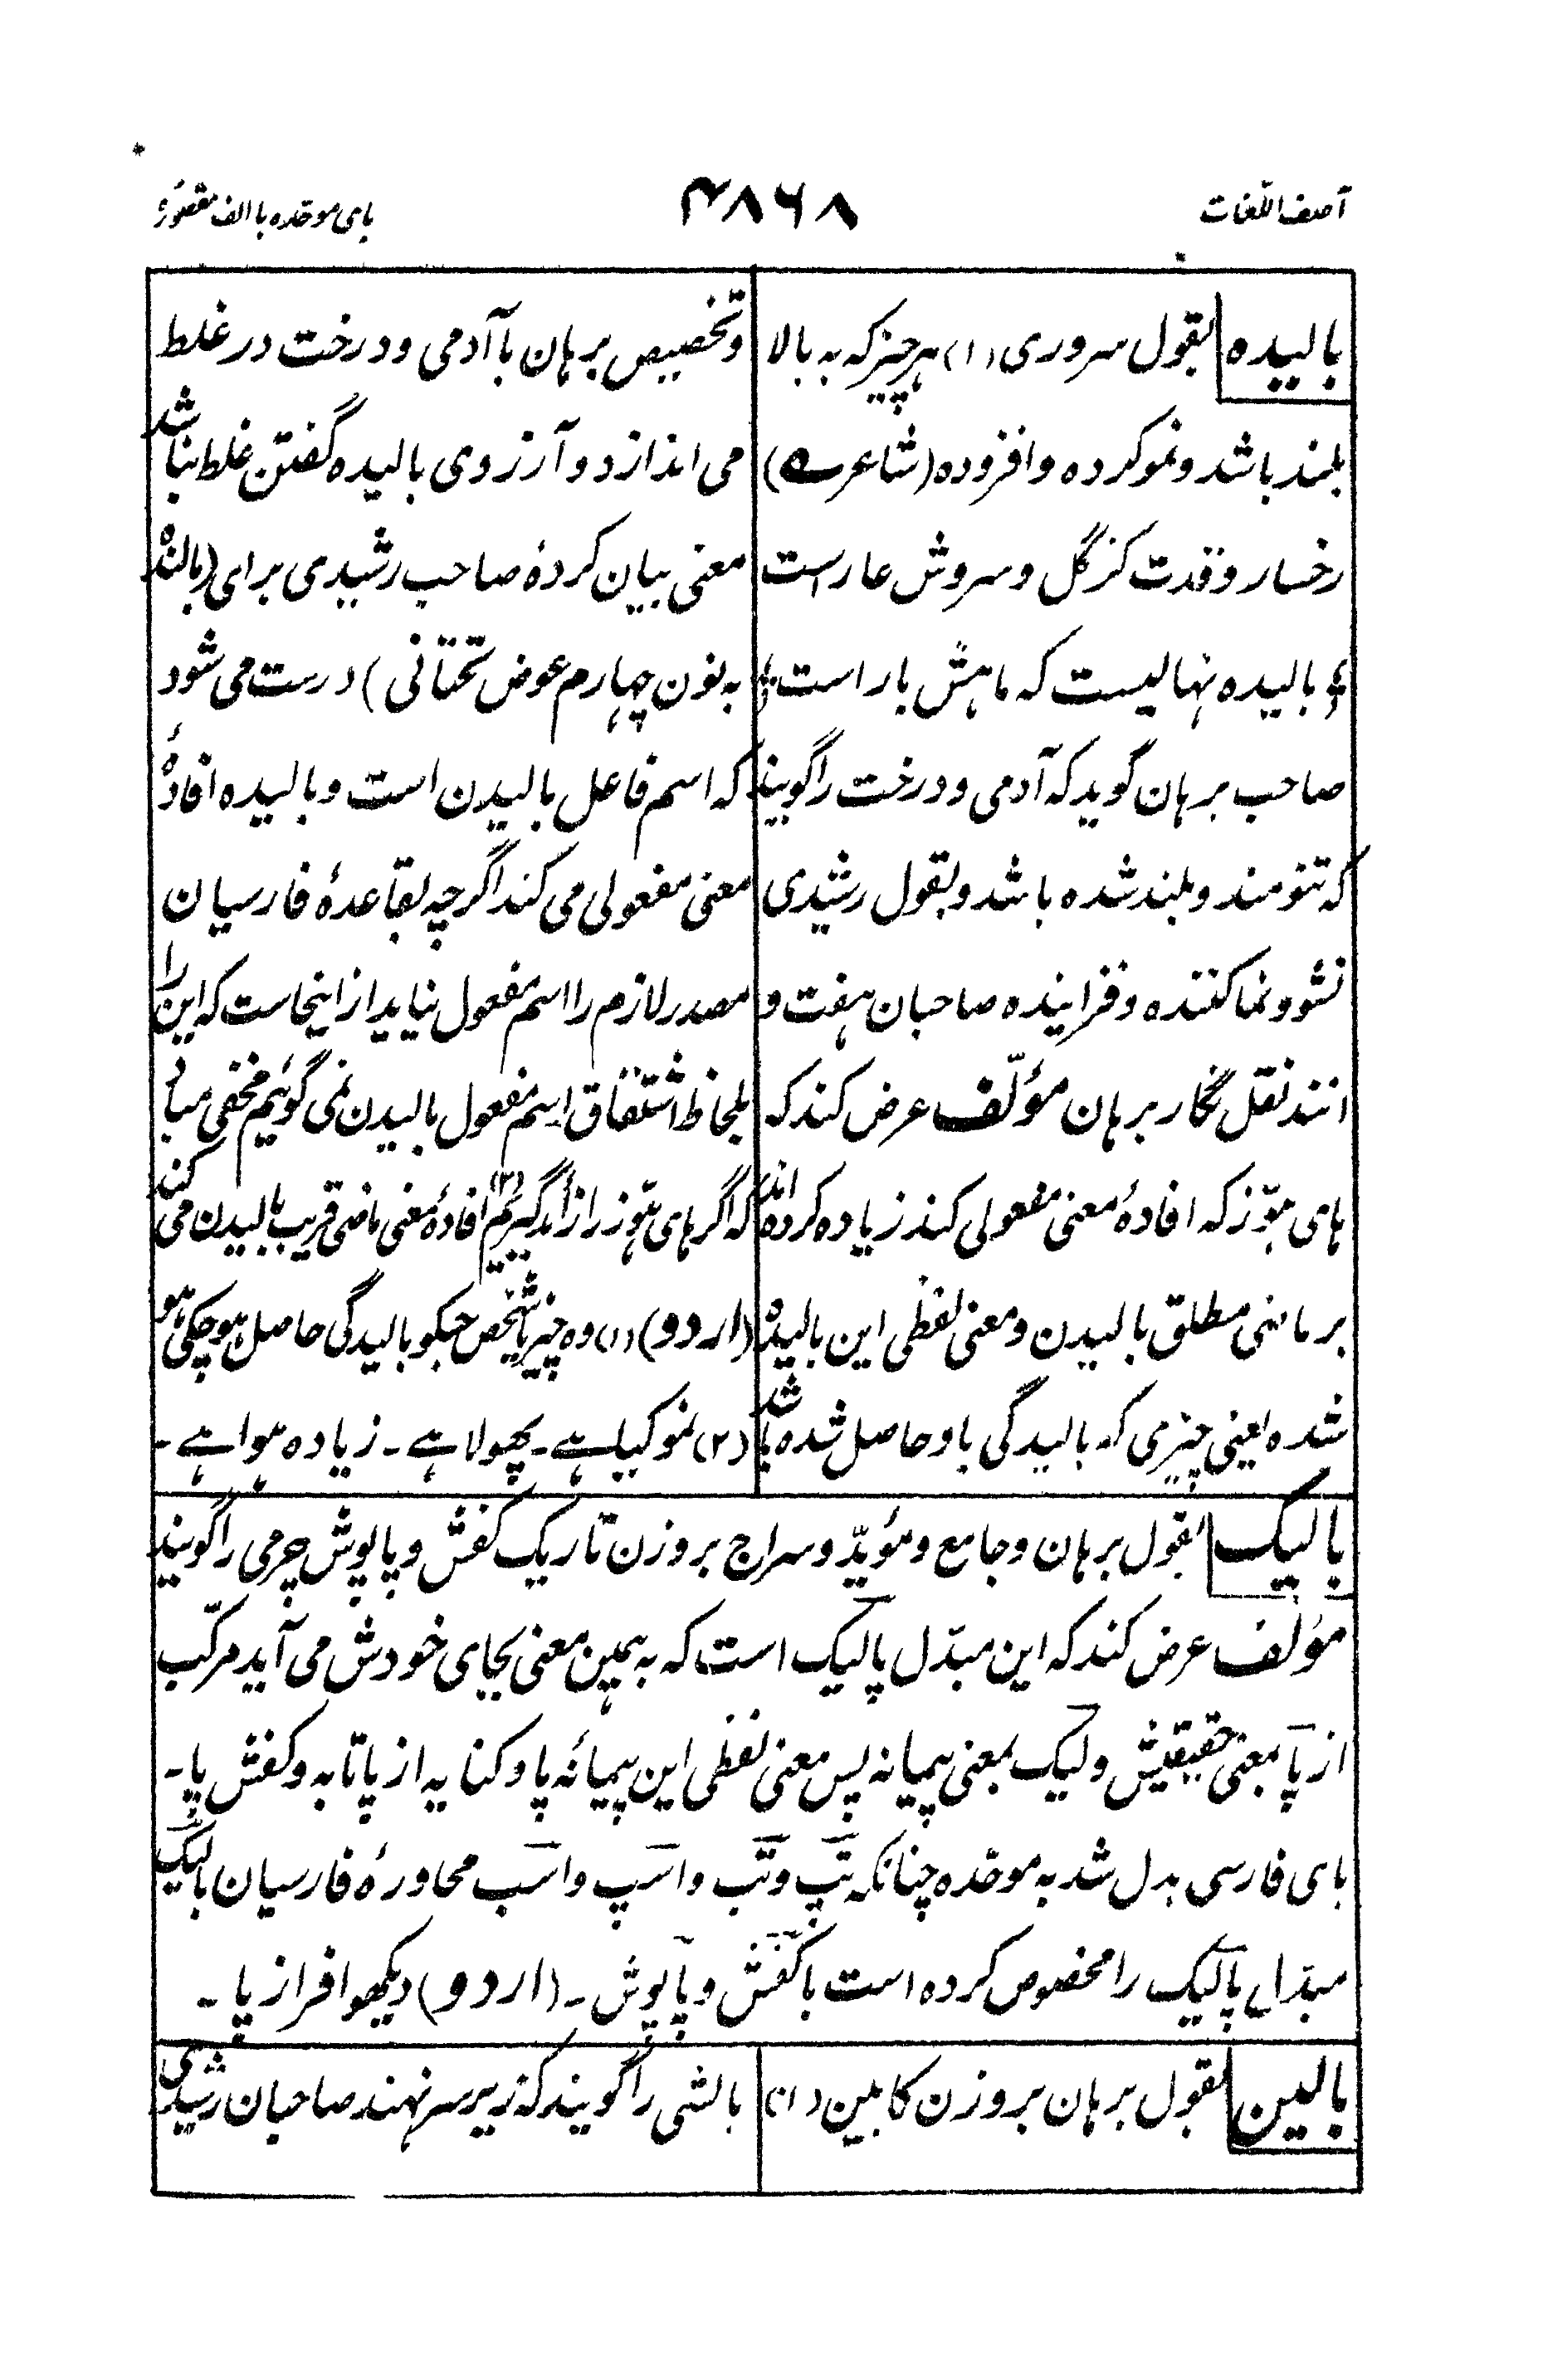 آصف اللّغات
۴۸۶۸
بای موحّده با الف مقصورهٔ
بالیده بقول سروری (۱) ہر چیز کہ بہ بالا
بلند باشد و نمو کردہ و افزودہ (شاعر ے)
رخسار و قدت کز گل و سروش عار است
؏ بالیدہ نہالیست کہ ماہش بار است ؏
صاحب برہان گوید کہ آدمی و درخت را گویند
کہ تنومند و بلند شدہ باشد و بقول رشیدی
نشو و نما کنندہ و فزایندہ صاحبان ہفت و
انند نقل نگار برہان مؤلّف عرض کند کہ
ہای ہوّز کہ افادۂ معنی مفعولی کند زیادہ کردہ اند
بر ماضی مطلق بالیدن و معنی لفظی این بالیدہ
شدہ یعنی چیزی کہ بالیدگی باو حاصل شدہ باشد
و تخصیص برہان با آدمی و درخت در غلط
می اندازد و آرزوی بالیدہ گفتن غلط نباشد
معنی بیان کردۂ صاحب رشیدی برای (بالندہ
بہ نون چہارم عوض تحتانی) درست می شود
کہ اسم فاعل بالیدن است و بالیدہ افادۂ
معنی مفعولی می کند اگرچہ بقاعدۂ فارسیان
مصدر لازم را اسم مفعول نیاید از اینجاست کہ این را
بلحاظ اشتقاق اسم مفعول بالیدن نمی گوئیم مخفی مباد
کہ اگر ہای ہوّز را زائد گیریم (۲) افادۂ معنی ماضی قریب بالیدن می کند
(اردو) (۱) وہ چیز یا شخص جسکو بالیدگی حاصل ہوچکی ہو
(۲) نمو کیا ہے ۔ پھولا ہے ۔ زیادہ ہوا ہے ۔
بالیک بقول برہان و جامع و مؤیّد و سراج بر وزن تاریک کفش و پاپوش چرمی را گویند
مؤلف عرض کند کہ این مبدّل پالیک است کہ بہ ہمین معنی بجای خودش می آید مرکّب
از پا بمعنی حقیقیش و لیک بمعنی پیمانہ پس معنی لفظی این پیمانۂ پا و کنایہ از پاتابہ و کفش پا ۔
بای فارسی بدل شد بہ موحّدہ چنانکہ تپ و تب و اسپ و اسب محاورۂ فارسیان بالیک
مبدّل پالیک را مخصوص کردہ است با کفش و پاپوش ۔ (اردو) دیکھو افراز پا ۔
بالین بقول برہان بر وزن کابین (۱)
بالشی را گویند کہ زیر سر نہند صاحبان رشیدی